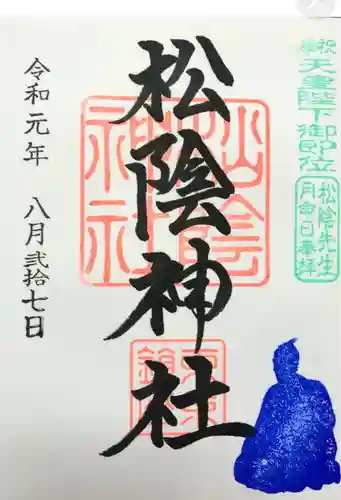 奉祝
天皇陛下御即位
松陰先生
月命日奉拝
松陰神社
松陰
神社
東京
令和元年 八月弐拾七日